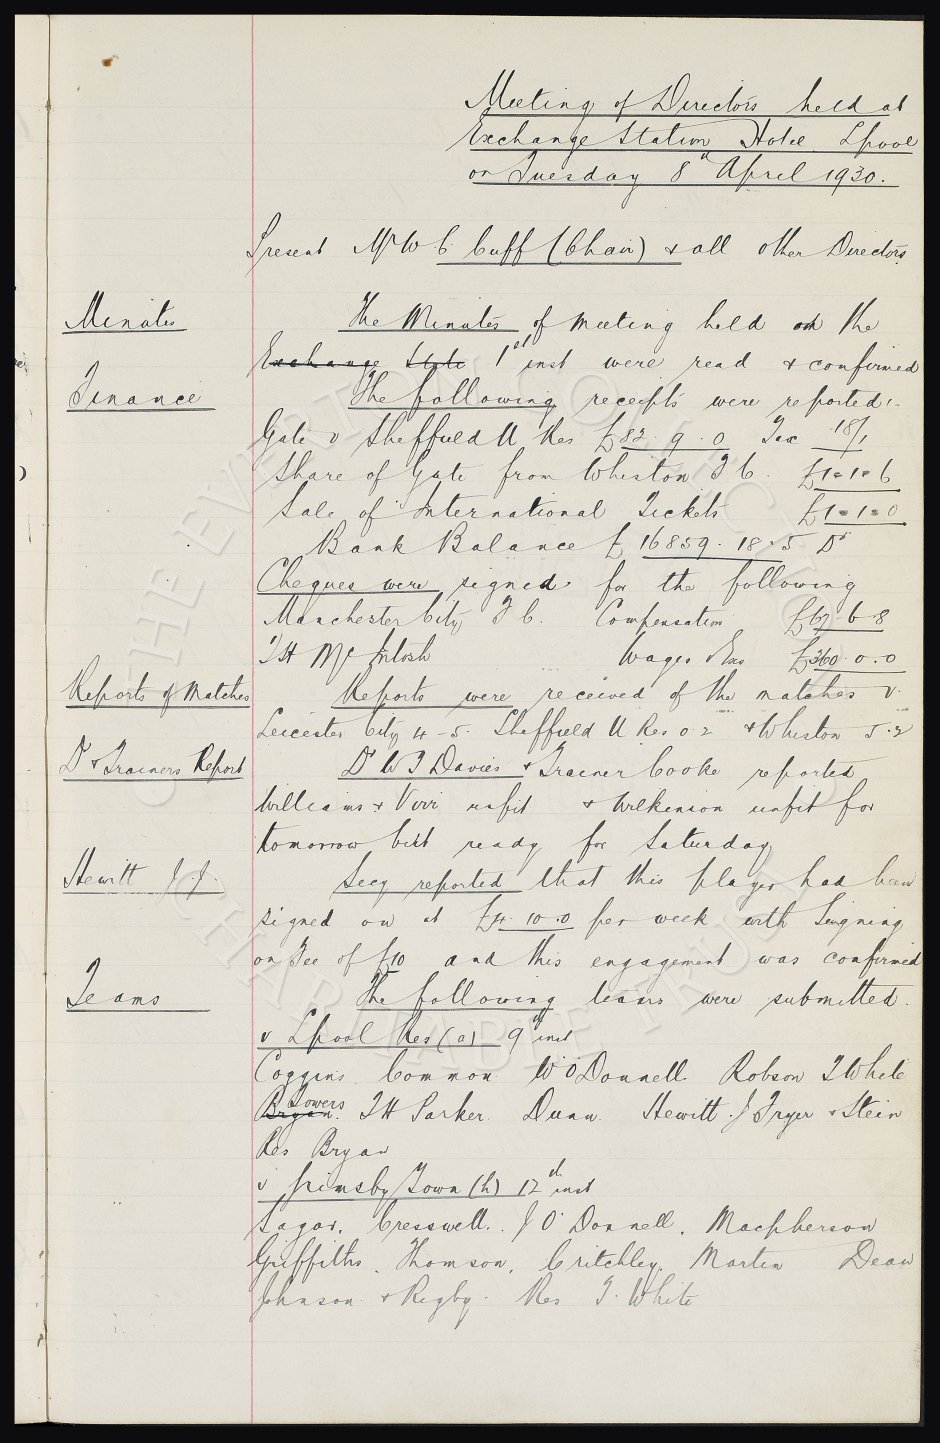 Meeting of Directors held at
Exchange Station Hotel Lpool
on Tuesday 8th April 1930.
Present Mr W C Cuff (Chair) & all other Directors
Minutes The Minutes of meeting held on the
Exchange State 1st inst were read & confirmed
Finance The following receipts were reported:-
Gate v Sheffield U Res £82.9.0 Tax 18/1
Share of Gate from Whiston F C. £1=1=6
Sale of International Tickets £1=1=0
Bank Balance £16859.18.5 Dr
Cheques were signed for the following
Manchester City F C. Compensation £67.6.8
T H McIntosh Wages &c £360.0.0
Reports of Matches Reports were received of the matches v.
Leicester City 4-5. Sheffield U Res 0.2 & Whiston 5.2
Dr & Trainers Report Dr W T Davies & Trainer Cooke reported
Williams & Virr unfit & Wilkinson unfit for
tomorrow but ready for Saturday
Hewitt J J. Secy reported that this player had been
signed on at £4.10.0 per week with Signing
on Fee of £10 and this engagement was confirmed
Teams The following teams were submitted.
v Lpool Res (a) 9th inst
Coggins. Common W O'Donnell Robson T White
Bryan. Towers T H Parker. Dunn. Hewitt. J Fryer & Stein
Res Bryan
v Grimsby Town (h) 12th inst
Sagar. Cresswell. J O'Donnell. Macpherson
Griffiths. Thomson. Critchley. Martin Dean
Johnson & Rigby. Res T. White
THE EVERTON COLLECTION
CHARITABLE TRUST